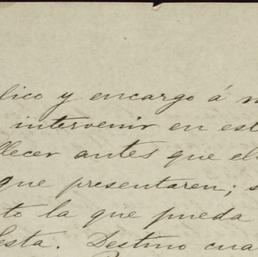 lico y encargo á m
intervenir en est
llecer antes que el
que presentaren; s
to la que pueda
esta. Destino cua